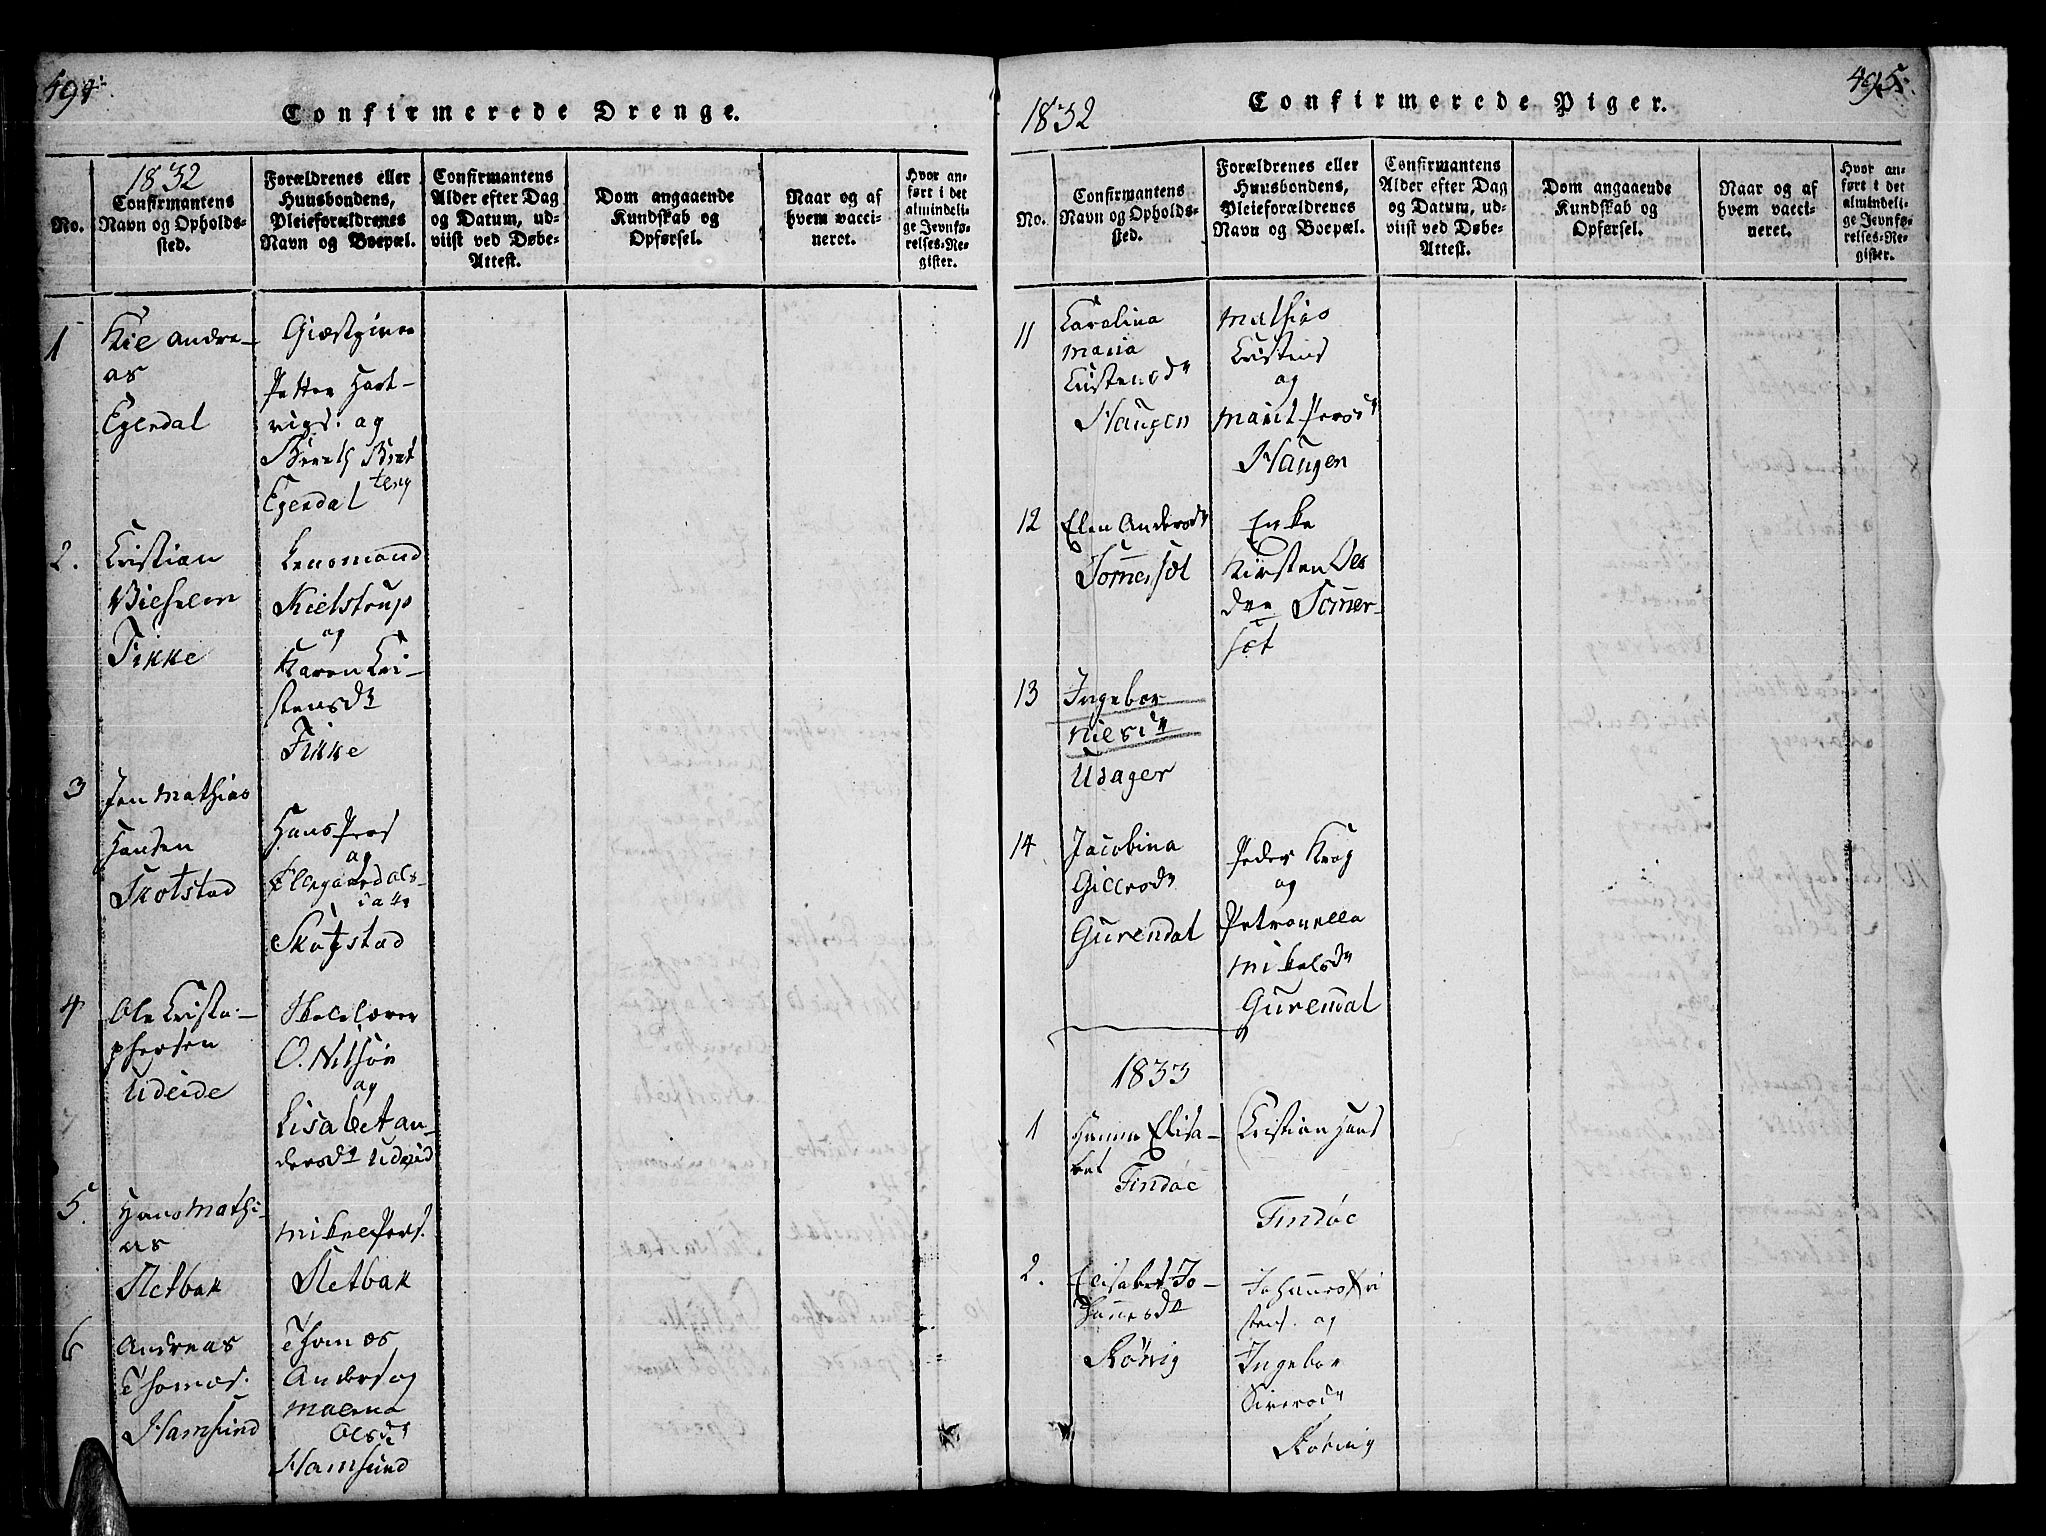 494.
Confirmerede Drenge.
No.
1832
Confirmantens
Navn og Opholds-
sted.
Forældrenes eller
Huusbondens,
Pleieforældrenes
Navn og Boepæl.
Confirmantens
Alder efter Dag
og Datum, ud-
viist ved Døbe-
Attest.
Dom angaaende
Kundskab og
Opførsel.
Naar og af
hvem vacci-
neret.
Hvor an-
ført i det
almindeli-
ge Jevnfø-
relses-Re-
gister.
1
Kie Andre-
as
Egerdal
Giæstgiver
Petter Hart-
vigs: og
Bereth Brat
teng
Egerdal
2.
Cristian
Vilhelm
Fikke
Lensmand
Kielstrup
og
Karen Cri-
stensdr
Fikke
3
Jen Mathias
Hansen
Skotstad
Hans Pers
og
datter
Skotstad
4
Ole Cristo-
phersen
Udeide
Skolelærer
O. Nilsøn
og
Lisabet An-
dersdr Udeid
5.
Hans Mathi-
as
Sletbak
Mikel Pers.
Sletbak
6
Andreas
Thomas.
Hamsund
Thomas
Anders og
Marna
Olsdr
Hamsund
495.
1832
Confirmerede Piger.
No.
Confirmantens
Navn og Opholds-
sted.
Forældrenes eller
Huusbondens,
Pleieforældrenes
Navn og Boepæl.
Confirmantens
Alder efter Dag
og Datum, ud-
viist ved Døbe-
Attest.
Dom angaaende
Kundskab og
Opførsel.
Naar og af
hvem vacci-
neret.
Hvor an-
ført i det
almindeli-
ge Jevnfø-
relses-Re-
gister.
11
Carolina
Maria
Cristensdr
Haugen
Mathias
Cristens
og
Marit Persdr
Haugen
12
Elen Andersdr
Somersæt
Enke
Kirsten Ols
dtr Somer-
sæt
13
Ingebor
Nielsdr
Udager
14
Jacobina
Gillersdr
Gurendal
Peder Krog
og
Petronella
Mikelsdr
Gurendal
1833
1
Hanna Elisa-
bet
Findøe
Cristian Hans
Findøe
2.
Elisabet Jo-
hannesdr
Rørvig
Johannes Kri
stens. og
Ingebor
Siversdr
Rørvig